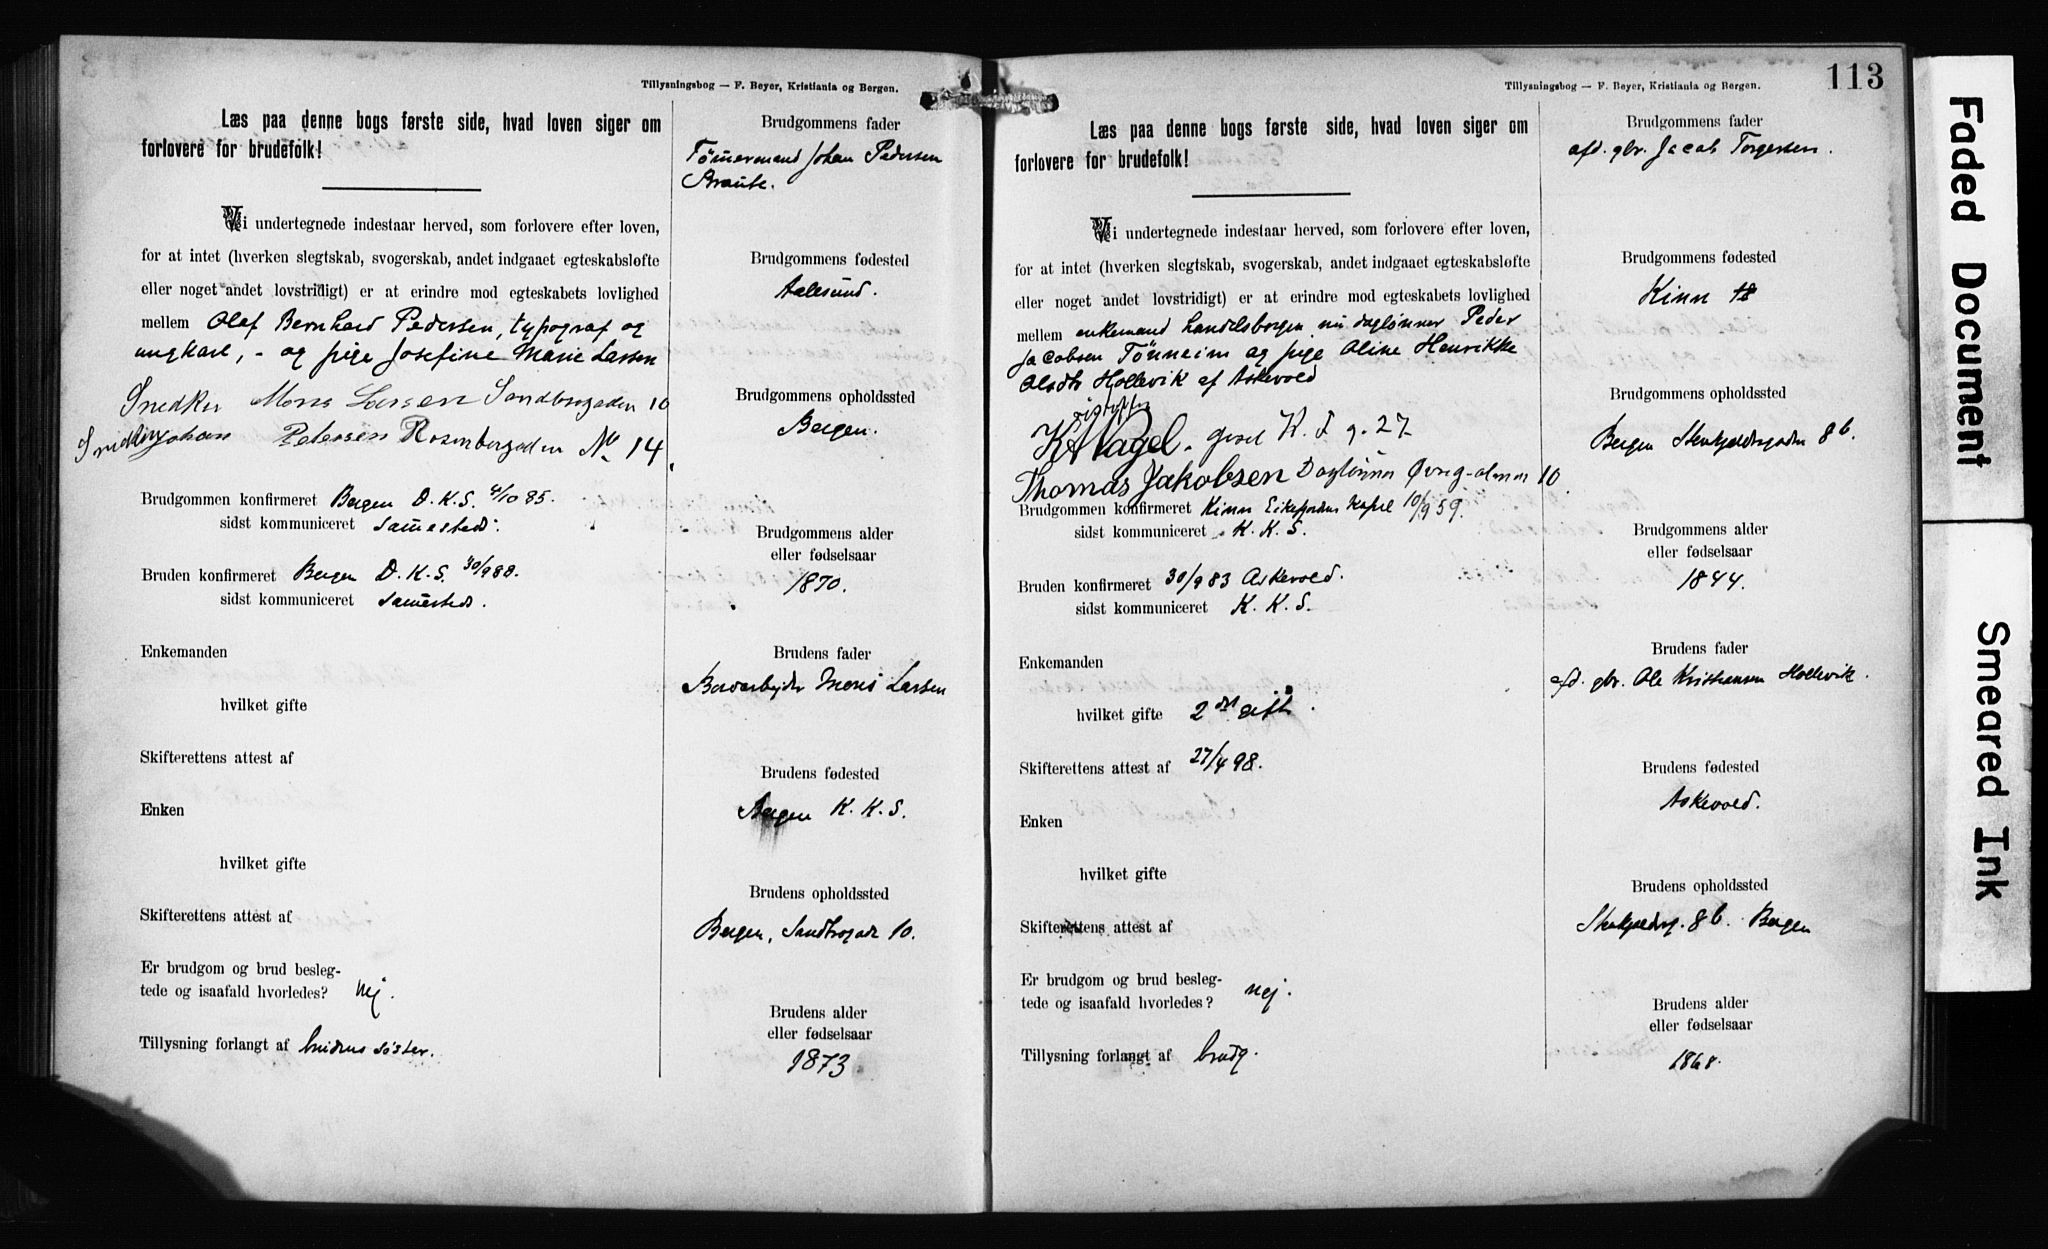 Tillysningsbog — F. Beyer, Kristiania og Bergen.
Læs paa denne bogs første side, hvad loven siger om
forlovere for brudefolk!
Vi undertegnede indestaar herved, som forlovere efter loven,
for at intet (hverken slegtskab, svogerskab, andet indgaaet egteskabsløfte
eller noget andet lovstridigt) er at erindre mod egteskabets lovlighed
mellem Olaf Bernhard Pedersen, typograf og
ungkarl, - og pige Josefine Marie Larsen
Snedker Mons Larsen Sandbrogaden 10
Snedker Johan Petersen Rosenbergaden No 14.
Brudgommen konfirmeret Bergen D. K. S. 4/10 85.
sidst kommuniceret sammesteds.
Bruden konfirmeret Bergen D. K. S. 30/9 88.
sidst kommuniceret sammesteds.
Enkemanden
hvilket gifte
Skifterettens attest af
Enken
hvilket gifte
Skifterettens attest af
Er brudgom og brud besleg-
tede og isaafald hvorledes? nej.
Tillysning forlangt af brudens søster.
Brudgommens fader
Tömmermand Johan Pedersen
Brudgommens fødested
Aalesund.
Brudgommens opholdssted
Bergen.
Brudgommens alder
eller fødselsaar
1870.
Brudens fader
Mons Larsen
Brudens fødested
Bergen K. K. S.
Brudens opholdssted
Bergen, Sandbrogade 10.
Brudens alder
eller fødselsaar
1873
Tillysningsbog — F. Beyer, Kristiania og Bergen.
113
Læs paa denne bogs første side, hvad loven siger om
forlovere for brudefolk!
Vi undertegnede indestaar herved, som forlovere efter loven,
for at intet (hverken slegtskab, svogerskab, andet indgaaet egteskabsløfte
eller noget andet lovstridigt) er at erindre mod egteskabets lovlighed
mellem enkemand handelsborger, nu daglønner Peder
Jacobsen Tönneim og pige Oline Henrikke
Olsdtr Hollevik af Askevold
K A Nagel. K. F g. 27
Thomas Jakobsen Daglønner Øvreg-almen 10.
Brudgommen konfirmeret Kinn Eikefjordens Kapel 10/9 59.
sidst kommuniceret K. K. S.
Bruden konfirmeret 30/9 83 Askevold.
sidst kommuniceret K. K. S.
Enkemanden
hvilket gifte 2det gifte.
Skifterettens attest af 27/4 98.
Enken
hvilket gifte
Skifterettens attest af
Er brudgom og brud besleg-
tede og isaafald hvorledes? nej.
Tillysning forlangt af brudg
Brudgommens fader
afd. gbr. Jacob Torgersen.
Brudgommens fødested
Kinn
Brudgommens opholdssted
Bergen Stenkjeldersgaden 8 b.
Brudgommens alder
eller fødselsaar
1844.
Brudens fader
afd. gbr. Ole Kristiansen Hollevik.
Brudens fødested
Askevold.
Brudens opholdssted
Stenkjeldersg. 8 b. Bergen
Brudens alder
eller fødselsaar
1868.
Faded Document
Smeared Ink